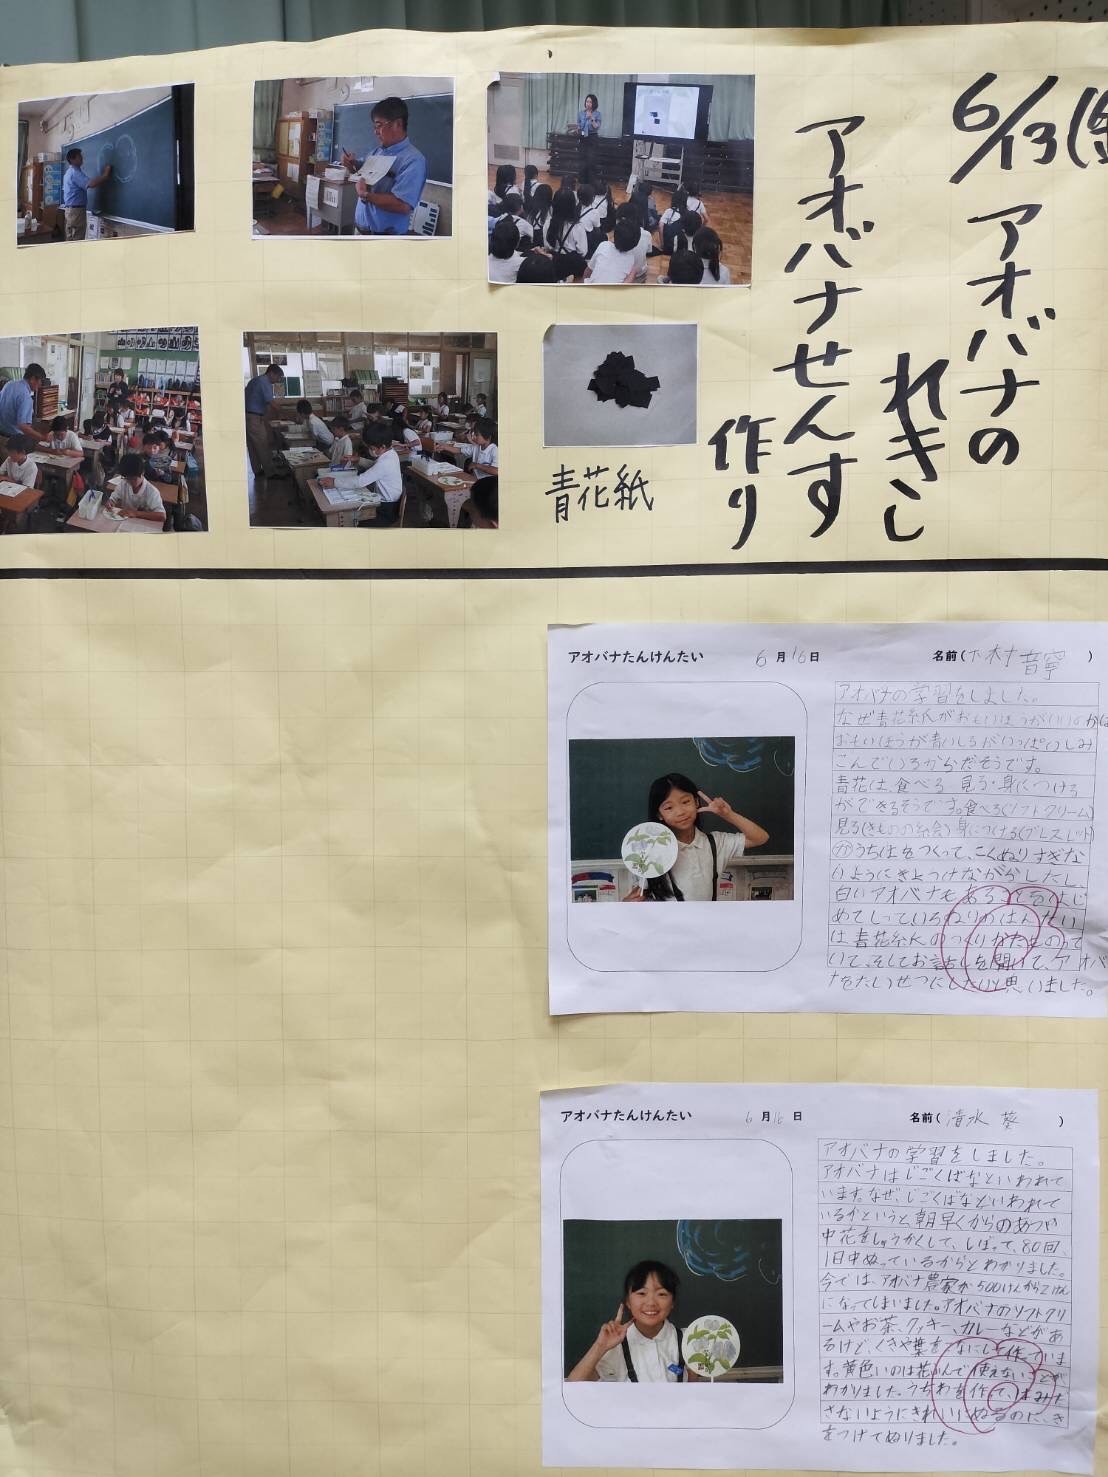 6/13(
アオバナの
れきし
アオバナせんす
作り
青花紙
アオバナたんけんたい 6月16日 名前(下村音寧)
アオバナの学習をしました。
なぜ青花紙がおもいほうがいいのかは
おもいほうが青いしるがいっぱいしみ
こんでいるからだそうです。
青花は、食べる 見る・身につける
ができるそうです。食べる(ソフトクリーム)
見る(きものの絵)身につける(ブレスレット)
うちはをつくって、こくぬりすぎな
いようにきよつけながらしたし、
白いアオバナもあることをはじ
めてしっている
は青花紙のつくりかたものって
いて、そしてお話しを聞いて、アオバ
ナをたいせつにしたいと思いました。
アオバナたんけんたい 6月16日 名前(清水 葵)
アオバナの学習をしました。
アオバナはじごくばなといわれて
います。なぜ、じごくばなといわれて
いるかというと朝早くからのあつい
中花をしゅうかくして、しばって、80回、
1日中ぬっているからとわかりました。
今では、アオバナ農家が500けんから2けん
になってしまいました。アオバナのソフトクリ
ームやお茶、クッキー、カレーなどがあ
るけど、くきや葉をこなにして作っていま
す。黄色いのは花ふんで使えないことが
わかりました。うちわを作って、はみだ
さないようにきれいにぬるのに、き
をつけてぬりました。